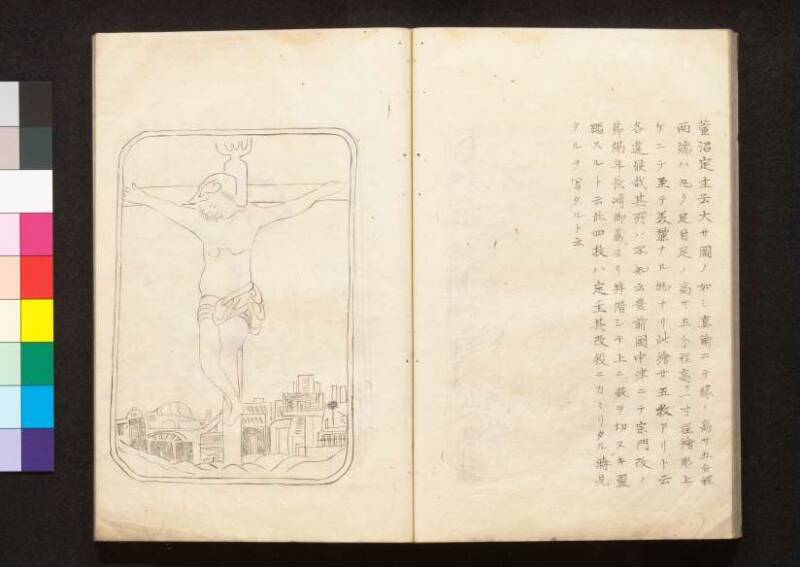 菅沼定圭云大サ圖ノ如シ真鍮ニテ縁ノ高サ五分程
両端ハ丸ク足日足ノ高サ五分程高サ一寸程繪形上
ケニテ至テ美麗ナル物ナリ此繪廿五枚アリト云
各違候哉其所ハ不知云豊前國中津ニテ宗門改ノ
節隔年長崎御蔵ヨリ拝借シテ上ニ板ヲ切ヌキ置
踏スルト云此四枚ハ定圭其改役ニカヽリタル時見
タルヲ写タルト云